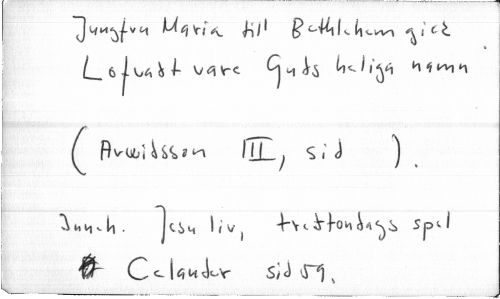 Jungfru Maria till Bethlehem gick
Lofvadt vare Guds heliga namn.
(Arwidsson III, sid ).
Inneh. Jesu liv, trettondags spel
Celander sid 59.